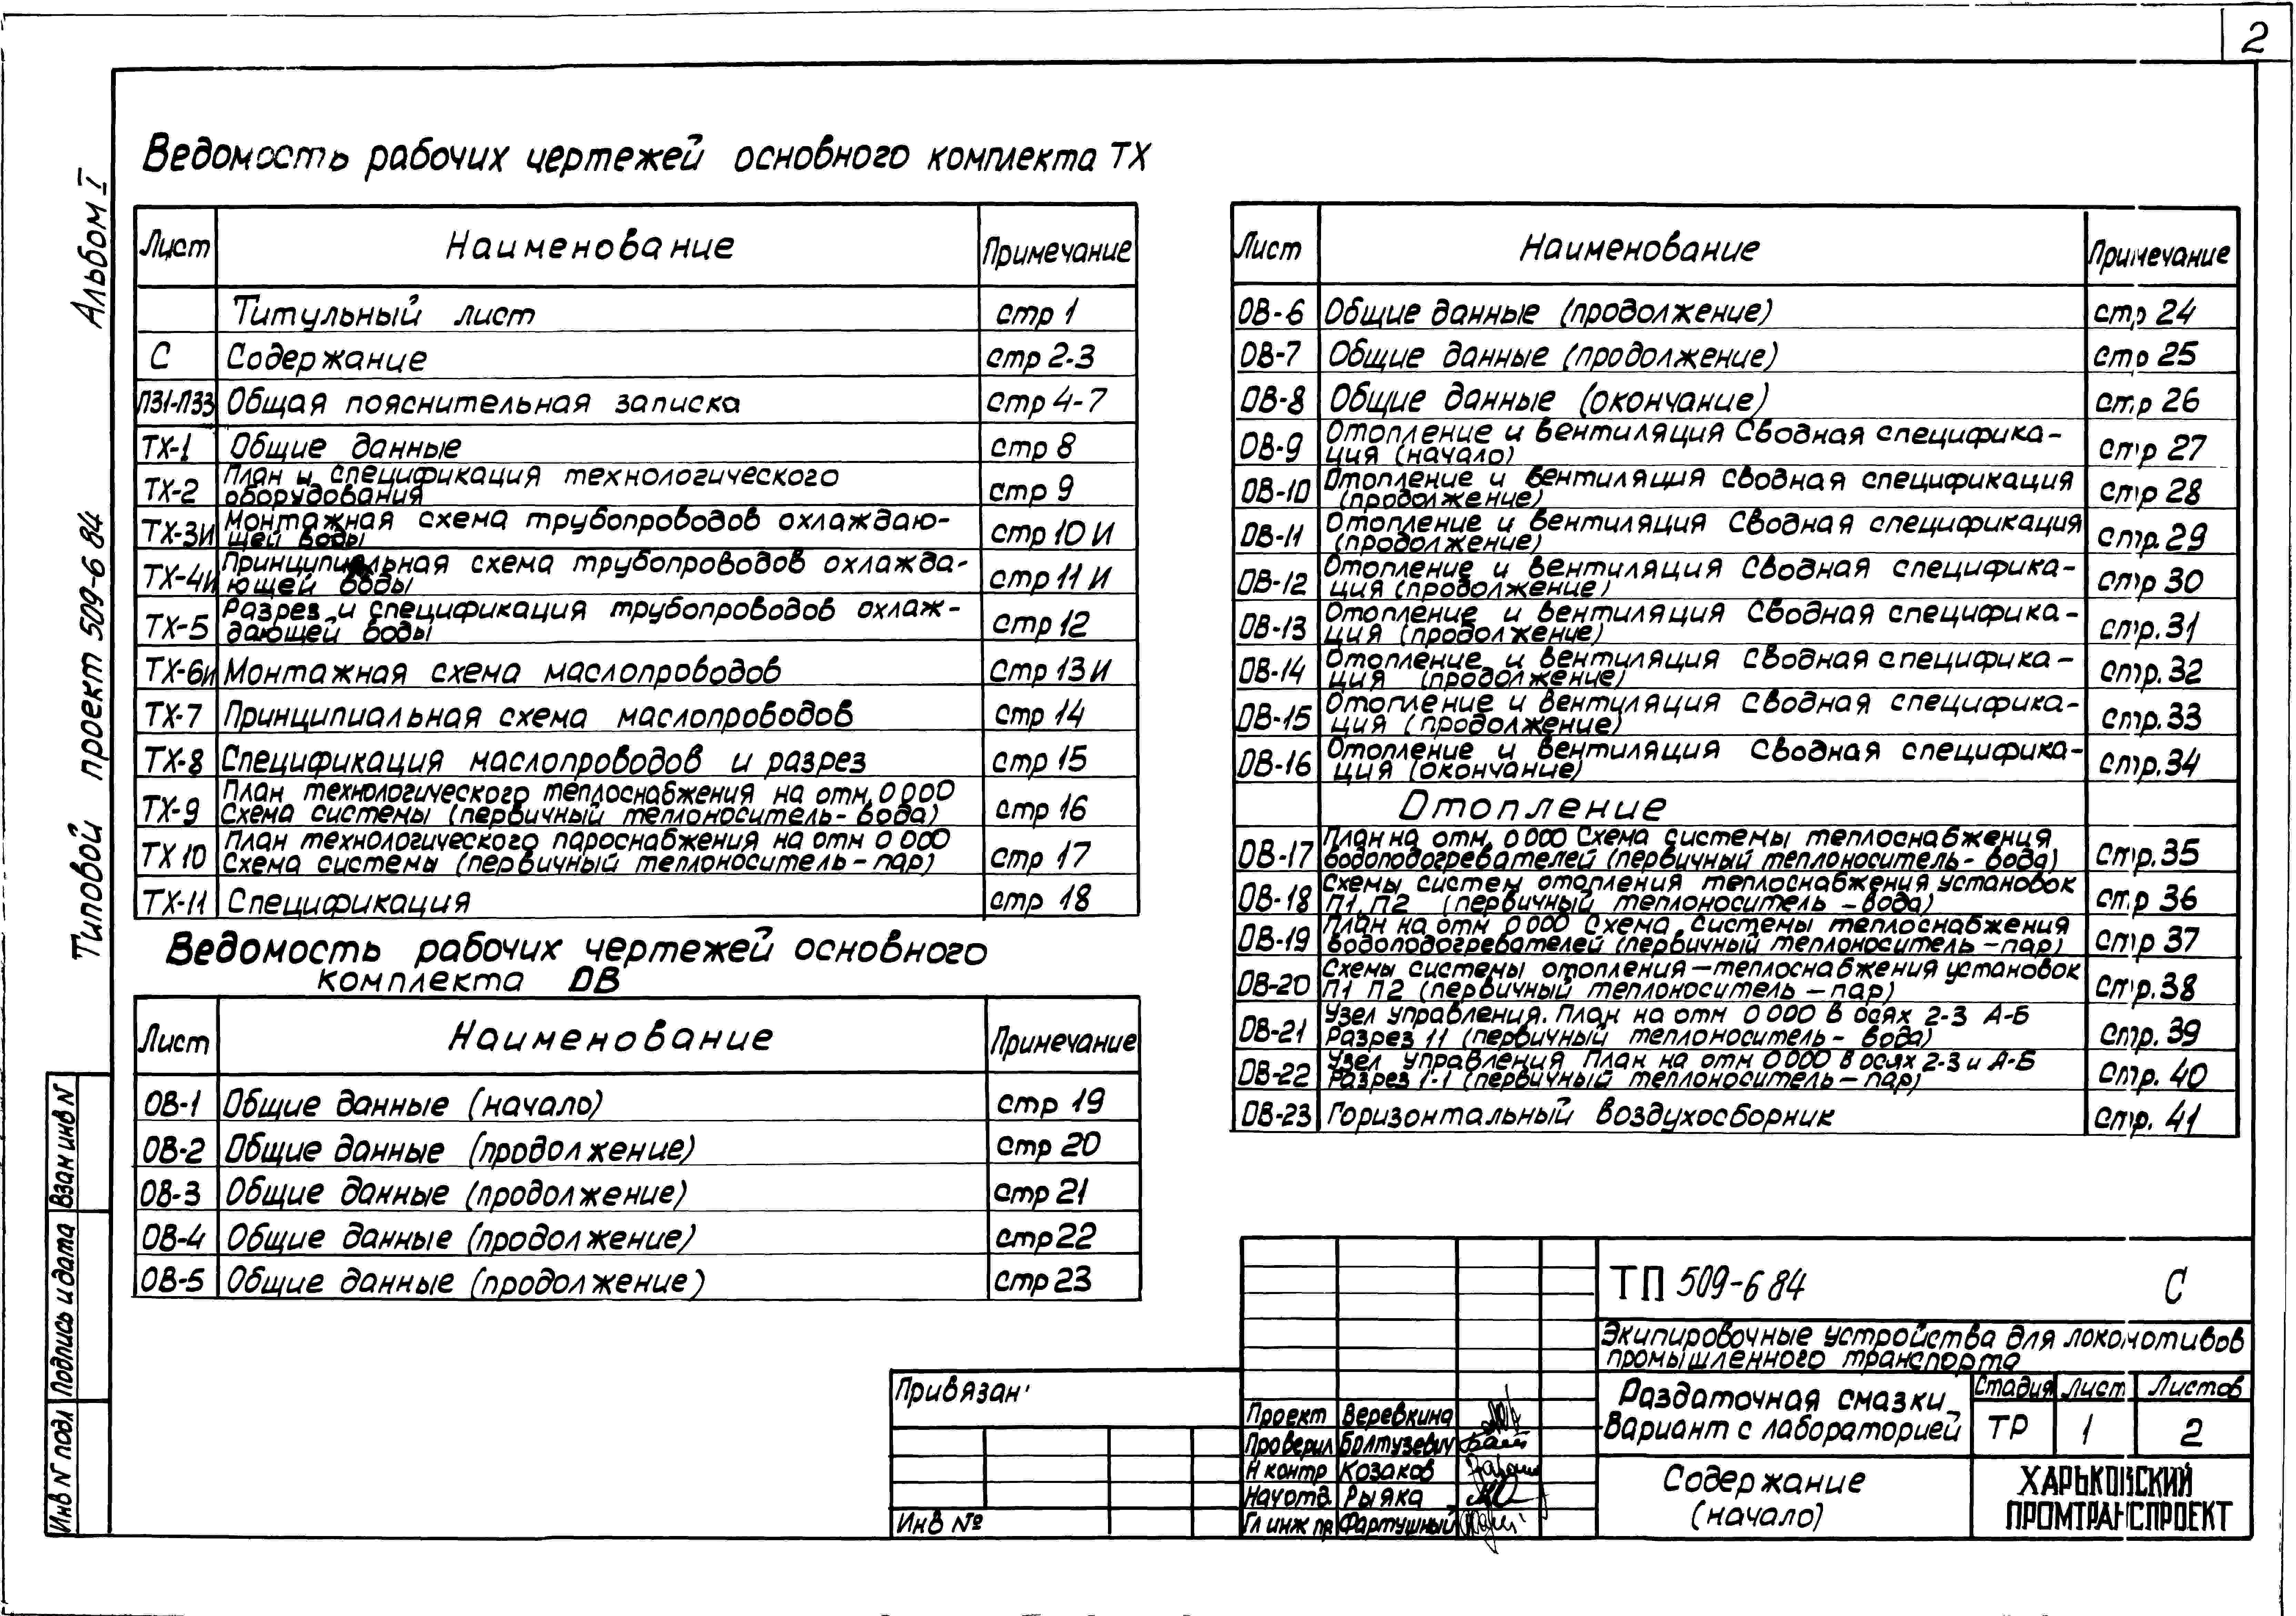 2
Ведомость рабочих чертежей основного комплекта ТХ
Лист Наименование Примечание
Титульный лист стр 1
С Содержание стр 2-3
ПЗ1-ПЗ3 Общая пояснительная записка стр 4-7
ТХ-1 Общие данные стр 8
ТХ-2 План и спецификация технологического
оборудования стр 9
ТХ-3И Монтажная схема трубопроводов охлаждаю-
щей воды стр 10 И
ТХ-4И Принципиальная схема трубопроводов охлажда-
ющей воды стр 11 И
ТХ-5 Разрез и спецификация трубопроводов охлаж-
дающей воды стр 12
ТХ-6И Монтажная схема маслопроводов стр 13 И
ТХ-7 Принципиальная схема маслопроводов стр 14
ТХ-8 Спецификация маслопроводов и разрез стр 15
ТХ-9 План технологического теплоснабжения на отм. 0 000
Схема системы (первичный теплоноситель- вода) стр 16
ТХ 10 План технологического пароснабжения на отм 0 000
Схема системы (первичный теплоноситель - пар) стр 17
ТХ-11 Спецификация стр 18
Ведомость рабочих чертежей основного
комплекта ОВ
Лист Наименование Примечание
ОВ-1 Общие данные (начало) стр 19
ОВ-2 Общие данные (продолжение) стр 20
ОВ-3 Общие данные (продолжение) стр 21
ОВ-4 Общие данные (продолжение) стр 22
ОВ-5 Общие данные (продолжение) стр 23
Лист Наименование Примечание
ОВ-6 Общие данные (продолжение) стр 24
ОВ-7 Общие данные (продолжение) стр 25
ОВ-8 Общие данные (окончание) стр 26
ОВ-9 Отопление и вентиляция Сводная специфика-
ция (начало) стр 27
ОВ-10 Отопление и вентиляция сводная спецификация
(продолжение) стр 28
ОВ-11 Отопление и вентиляция Сводная спецификация
(продолжение) стр. 29
ОВ-12 Отопление и вентиляция Сводная специфика-
ция (продолжение) стр 30
ОВ-13 Отопление и вентиляция Сводная специфика-
ция (продолжение) стр. 31
ОВ-14 Отопление и вентиляция Сводная специфика-
ция (продолжение) стр. 32
ОВ-15 Отопление и вентиляция Сводная специфика-
ция (продолжение) стр. 33
ОВ-16 Отопление и вентиляция Сводная специфика-
ция (окончание) стр. 34
Отопление
ОВ-17 План на отм. 0 000 Схема системы теплоснабжения
водоподогревателей (первичный теплоноситель - вода) стр. 35
ОВ-18 Схемы систем отопления теплоснабжения установок
П1, П2 (первичный теплоноситель - вода) стр 36
ОВ-19 План на отм 0 000 Схема системы теплоснабжения
водоподогревателей (первичный теплоноситель - пар) стр 37
ОВ-20 Схемы системы отопления - теплоснабжения установок
П1 П2 (первичный теплоноситель - пар) стр. 38
ОВ-21 Узел управления. План на отм 0 000 в осях 2-3 А-Б
Разрез 11 (первичный теплоноситель - вода) стр. 39
ОВ-22 Узел управления План на отм 0 000 в осях 2-3 и А-Б
Разрез 1-1 (первичный теплоноситель - пар) стр. 40
ОВ-23 Горизонтальный воздухосборник стр. 41
Альбом I
Типовой проект 509-6 84
Взам инв N
Подпись и дата
Инв N подл
Привязан:
Инв №
Проект Веревкина
Проверил Болтузевич
Н контр Козаков
Нач отд. Рыяка
Гл инж пр Фартушный
ТП 509-6 84 С
Экипировочные устройства для локомотивов
промышленного транспорта
Раздаточная смазки.
Вариант с лабораторией
Стадия Лист Листов
ТР 1 2
Содержание
(начало)
ХАРЬКОВСКИЙ
ПРОМТРАНСПРОЕКТ